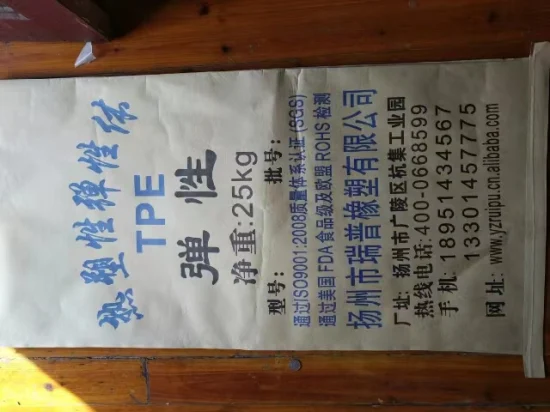 热塑性弹性体
TPE
弹性
净重:25kg
型号: 批号:
通过ISO9001:2008质量体系认证(SGS)
通过美国FDA食品级及欧盟ROHS检测
扬州市瑞普橡塑有限公司
厂址: 扬州市广陵区杭集工业园
热线电话:400-0668599
手机: 18951434567
13301457775
网址: www.yzruipu.cn.alibaba.com